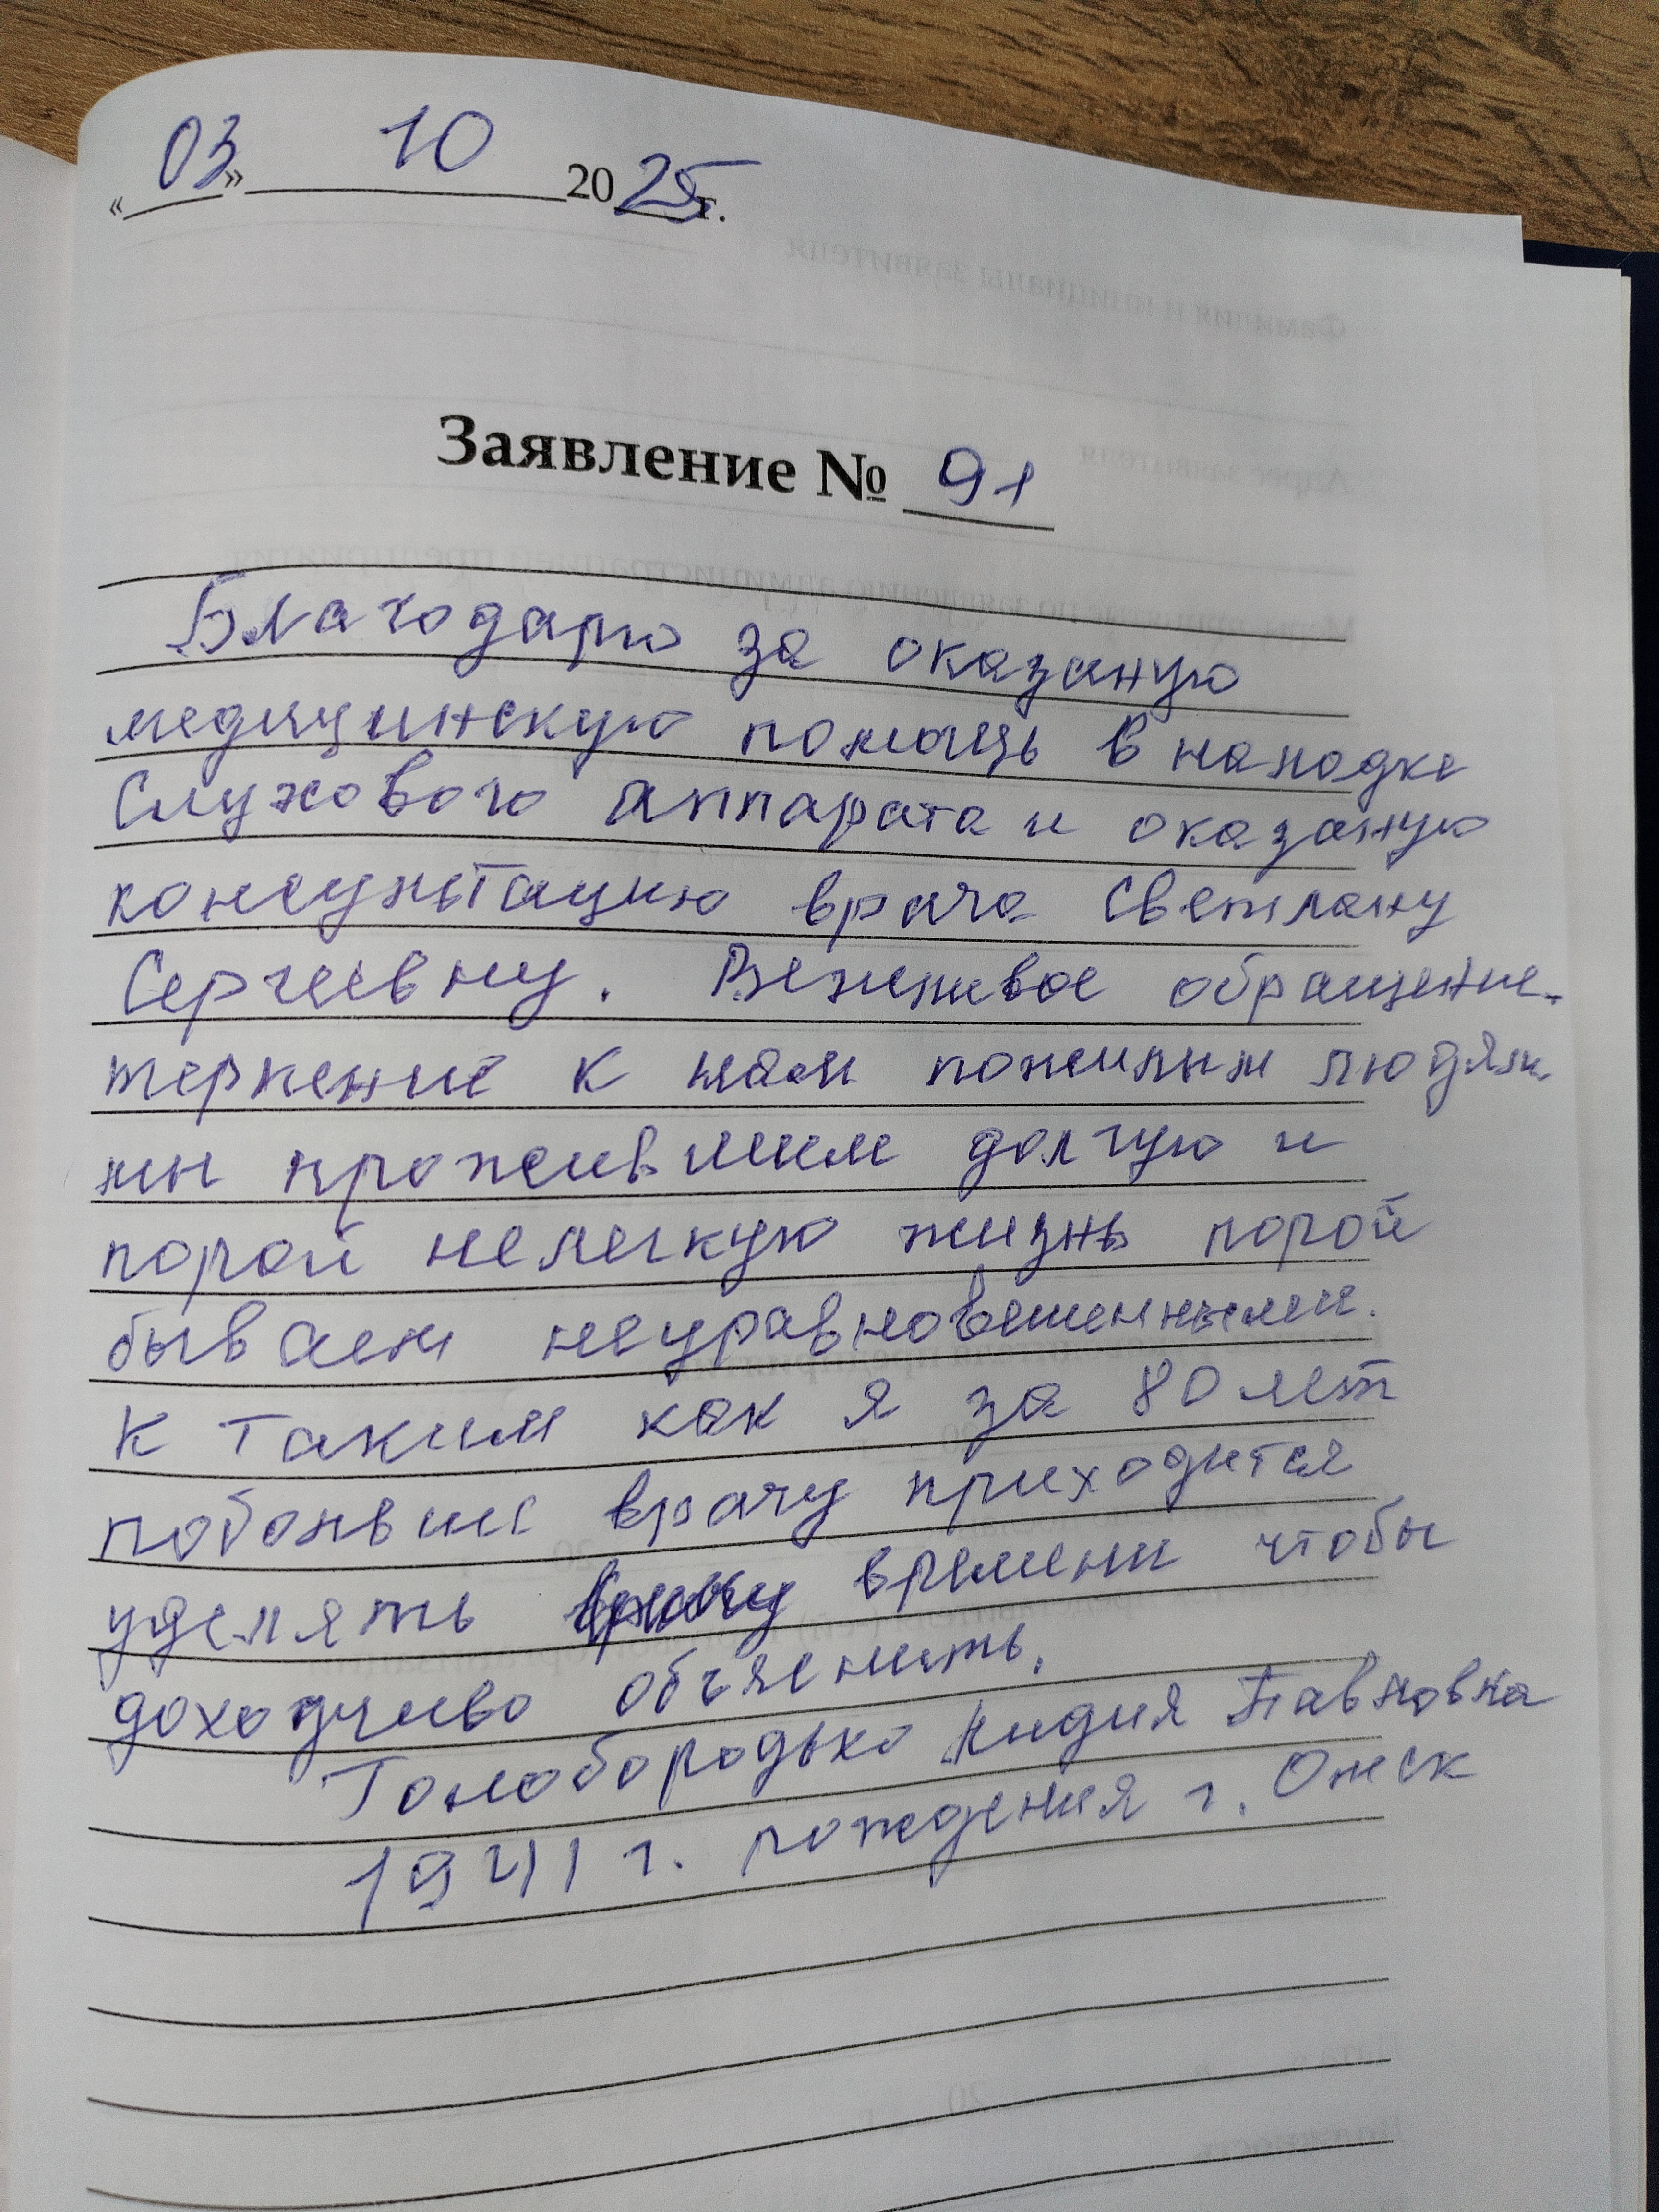 «03» 10 2025 г.
Заявление № 91
Благодарю за оказаную
медицинскую помощь в наладке
Слухового аппарата и оказаную
консультацию врача Светлану
Сергеевну. Вежливое обращение.
терпение к нам пожилым людям.
мы прожившим долгую и
порой нелегкую жизнь порой
бываем неуравновешенными.
К таким как я за 80 лет
врачу приходится
уделять времени чтобы
доходчиво объяснить.
Голобородько Лидия Павловна
1941 г. рождения г. Омск